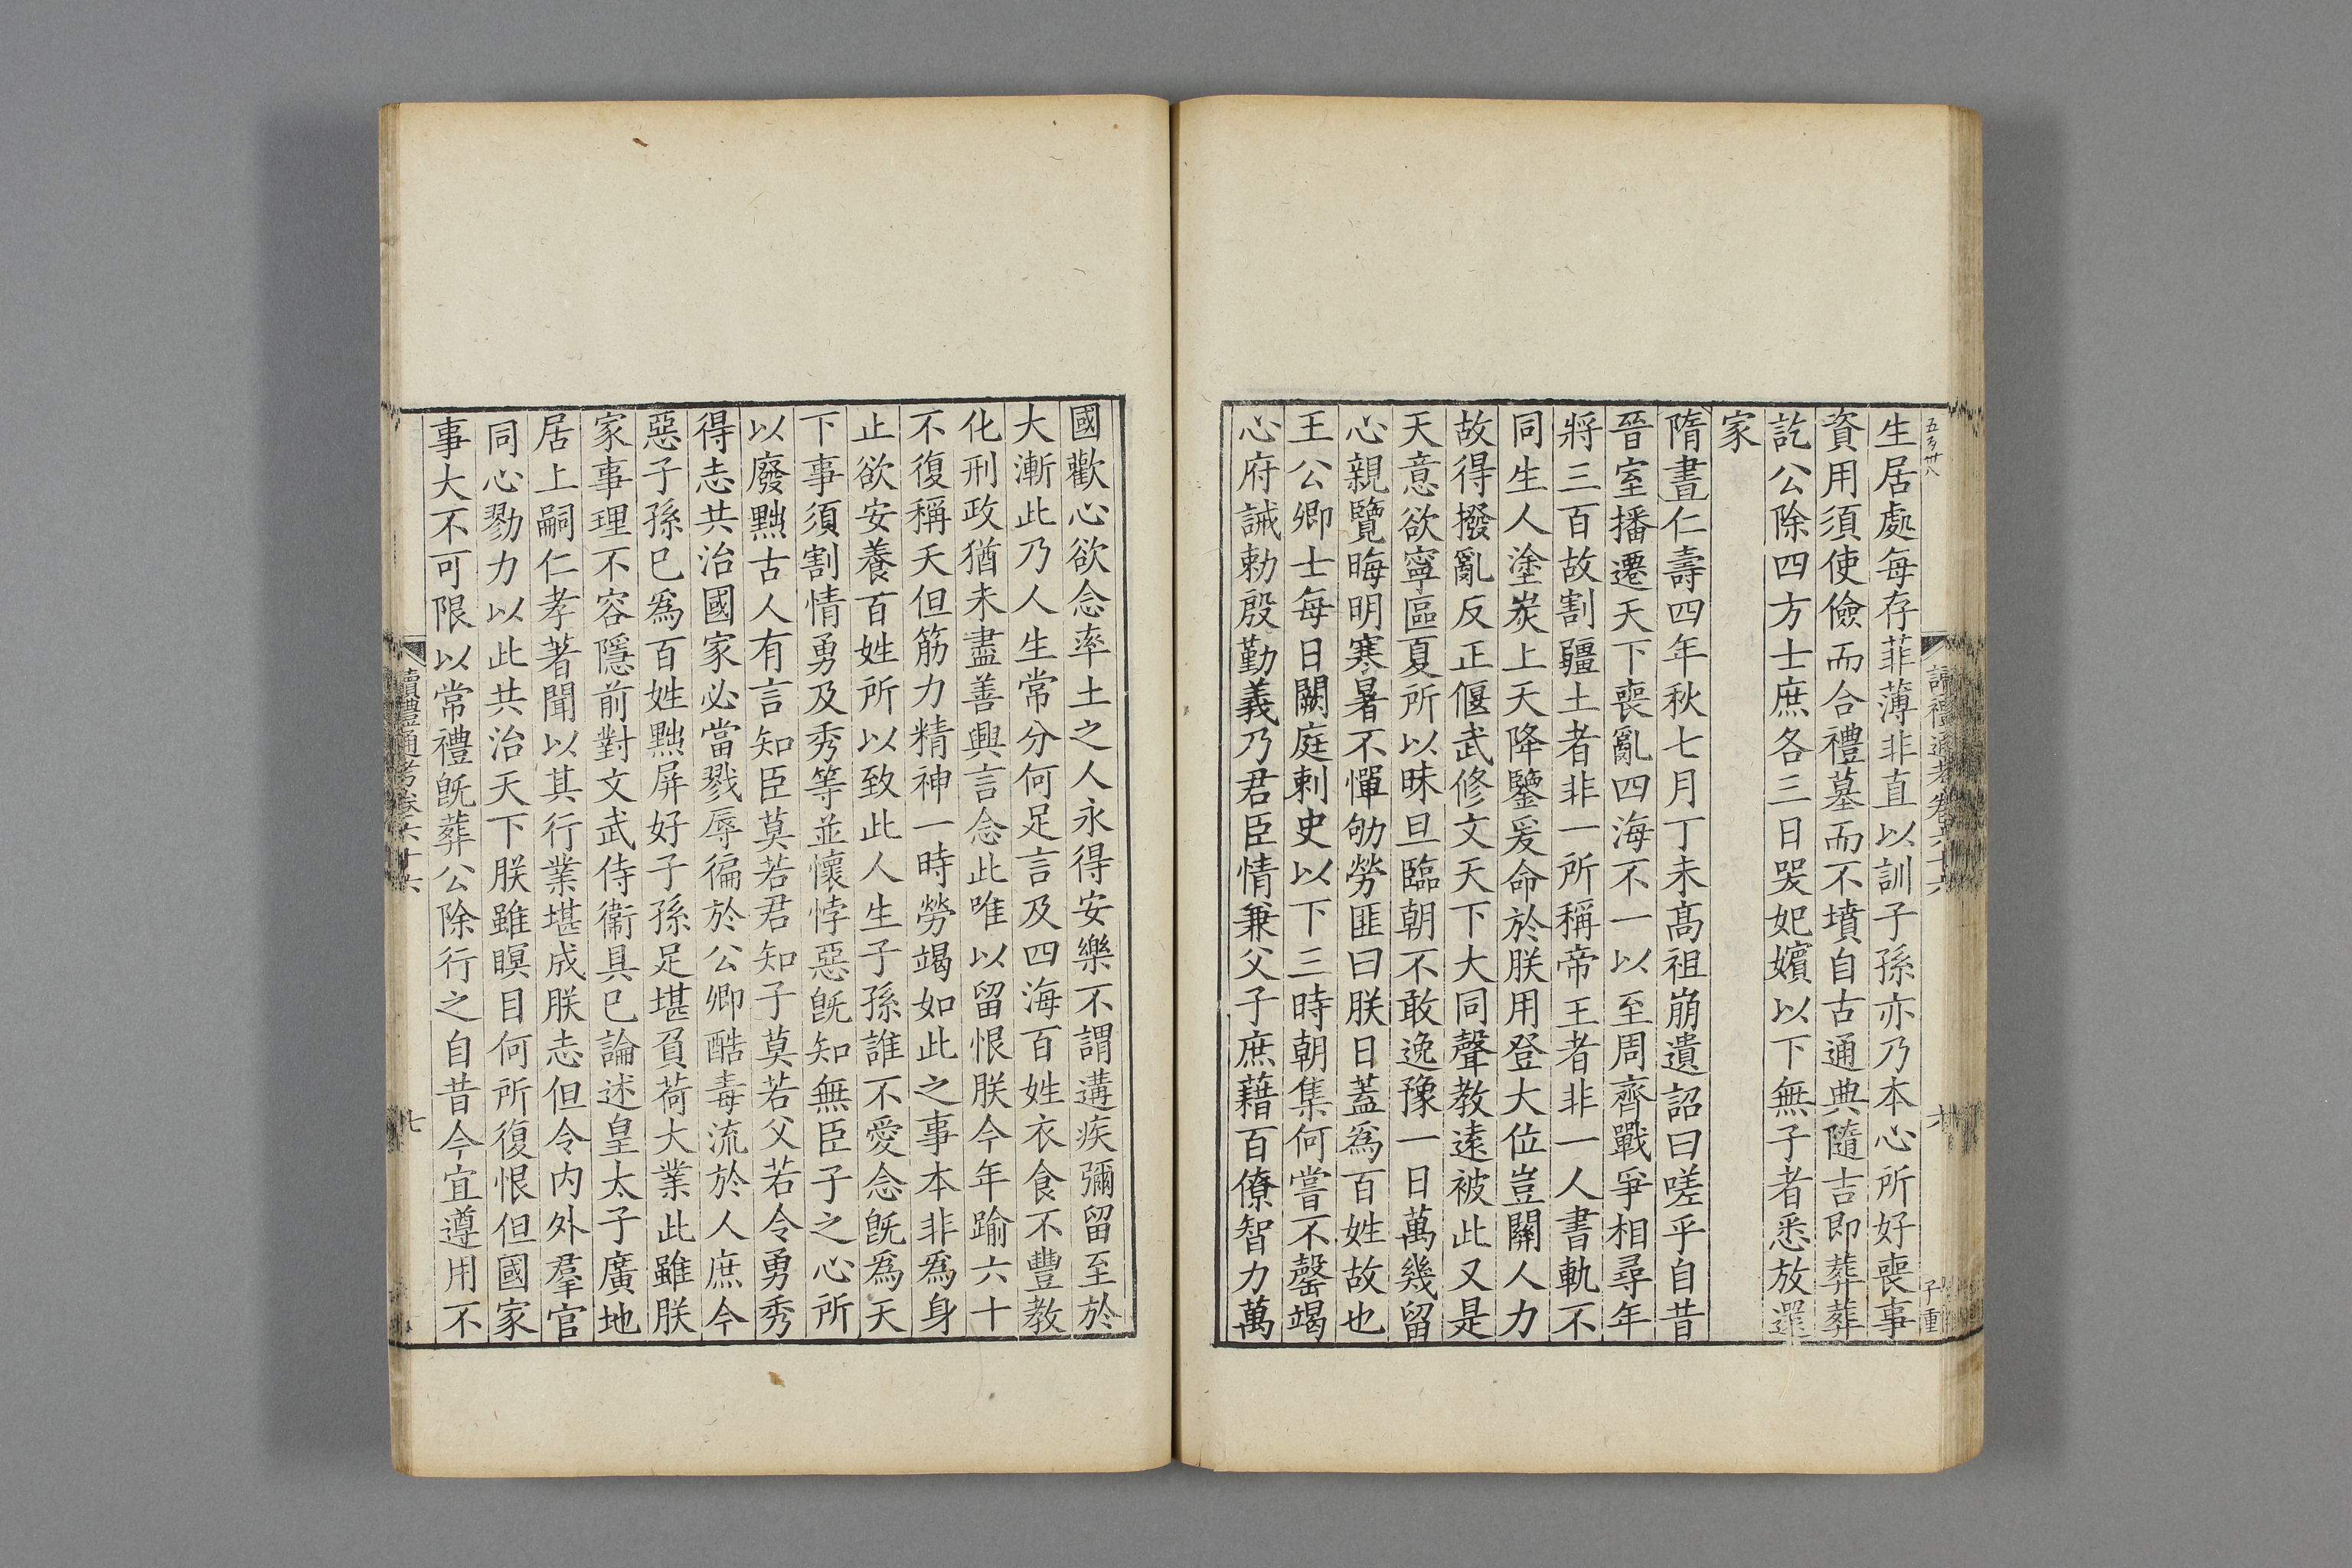 生居處每存菲薄非直以訓子孫亦乃本心所好喪事
資用須使儉而合禮墓而不墳自古通典隨吉即葬葬
訖公除四方士庶各三日哭妃嬪以下無子者悉放還
家
隋書仁壽四年秋七月丁未高祖崩遺詔曰嗟乎自昔
晉室播遷天下喪亂四海不一以至周齊戰爭相尋年
將三百故割疆土者非一所稱帝王者非一人書軌不
同生人塗炭上天降鑒爰命於朕用登大位豈關人力
故得撥亂反正偃武修文天下大同聲教遠被此又是
天意欲寧區夏所以昧旦臨朝不敢逸豫一日萬幾留
心親覽晦明寒暑不憚劬勞匪曰朕日蓋爲百姓故也
王公卿士每日闕庭刺史以下三時朝集何嘗不罄竭
心府誡勅殷勤義乃君臣情兼父子庶藉百僚智力萬
國歡心欲念率土之人永得安樂不謂遘疾彌留至於
大漸此乃人生常分何足言及四海百姓衣食不豐教
化刑政猶未盡善興言念此唯以留恨朕今年踰六十
不復稱夭但筋力精神一時勞竭如此之事本非爲身
止欲安養百姓所以致此人生子孫誰不愛念旣爲天
下事須割情勇及秀等並懷悖惡旣知無臣子之心所
以廢黜古人有言知臣莫若君知子莫若父若令勇秀
得志共治國家必當戮辱徧於公卿酷毒流於人庶今
惡子孫已爲百姓黜屏好子孫足堪負荷大業此雖朕
家事理不容隱前對文武侍衞具已論述皇太子廣地
居上嗣仁孝著聞以其行業堪成朕志但令内外羣官
同心勠力以此共治天下朕雖瞑目何所復恨但國家
事大不可限以常禮旣葬公除行之自昔今宜遵用不
讀禮通考卷六十六
七